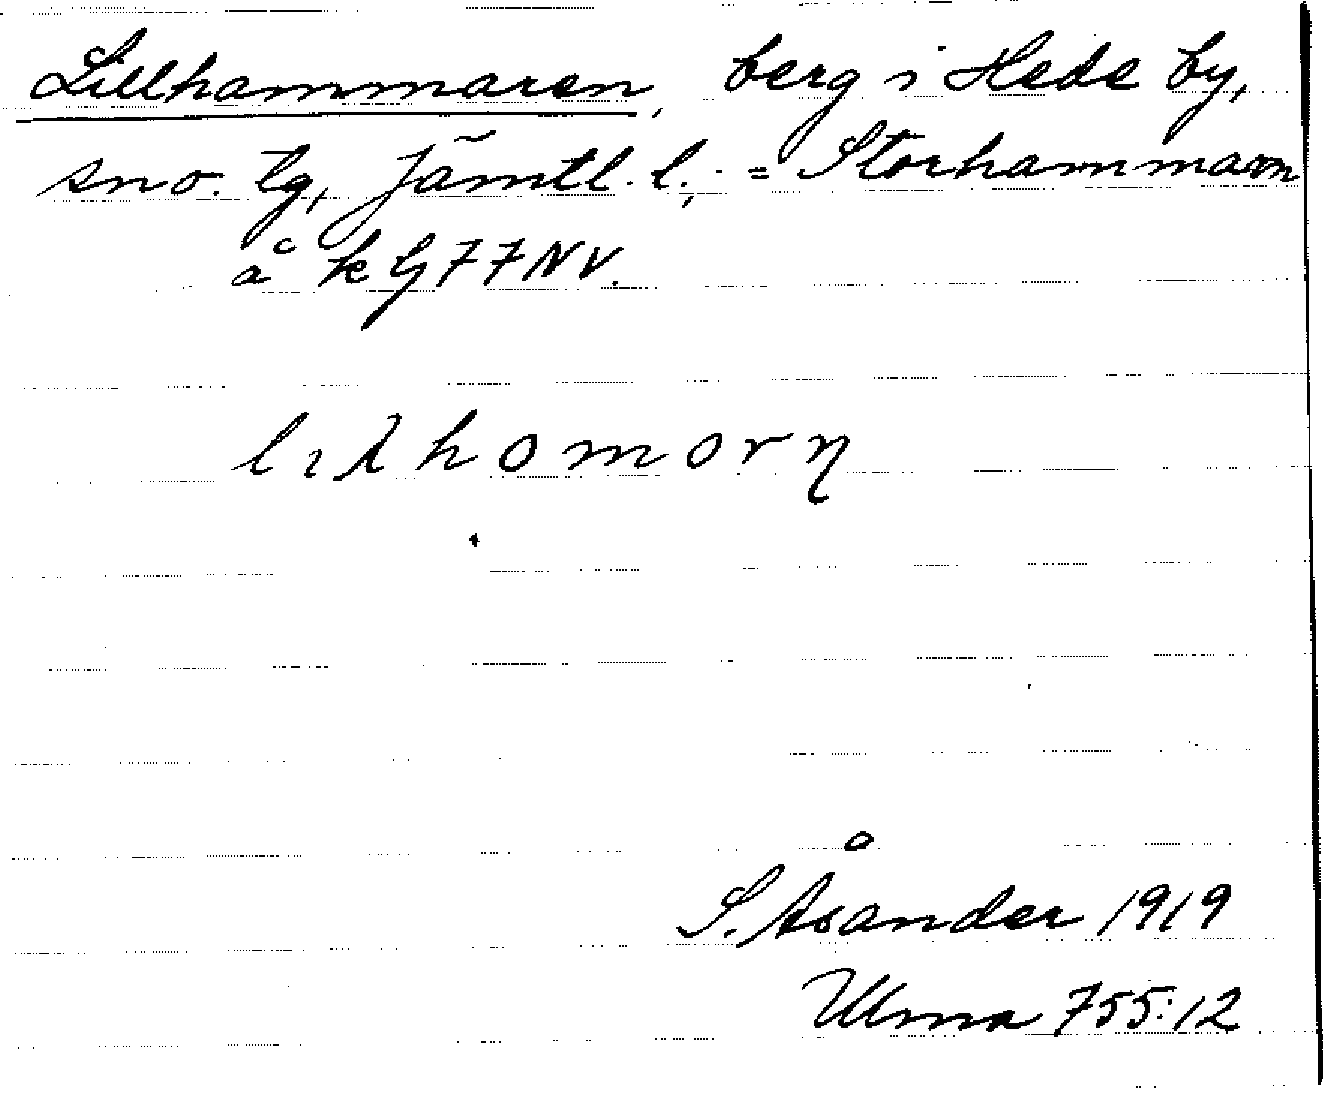 Lillhammaren, berg i Hede by,
sno. tg, Jämtl. l.; = Storhammaren
å k G 77 NV.
lıλhomorŋ
S. Åsander 1919
Ulma 755:12